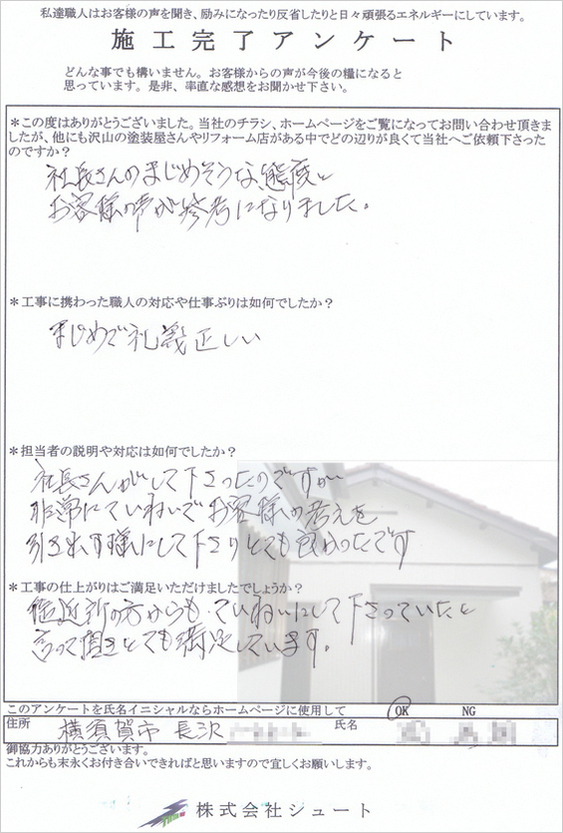 私達職人はお客様の声を聞き、励みになったり反省したりと日々頑張るエネルギーにしています。
施工完了アンケート
どんな事でも構いません。お客様からの声が今後の糧になると
思っています。是非、率直な感想をお聞かせ下さい。
＊この度はありがとうございました。当社のチラシ、ホームページをご覧になってお問い合わせ頂きま
したが、他にも沢山の塗装屋さんやリフォーム店がある中でどの辺りが良くて当社へご依頼下さった
のですか？
社長さんのまじめそうな態度と
お客様の声が参考になりました。
＊工事に携わった職人の対応や仕事ぶりは如何でしたか？
まじめで礼義正しい
＊担当者の説明や対応は如何でしたか？
社長さんがして下さったのですが
非常にていねいでお客様の考えを
引き出す様にして下さりとても良かったです
＊工事の仕上がりはご満足いただけましたでしょうか？
近所の方からも ていねいにして下さっていたと
言って頂きとても満足しています。
このアンケートを氏名イニシャルならホームページに使用して OK NG
住所 横須賀市 長沢 氏名
御協力ありがとうございます。
これからも末永くお付き合いできればと思いますので宜しくお願いします。
株式会社シュート